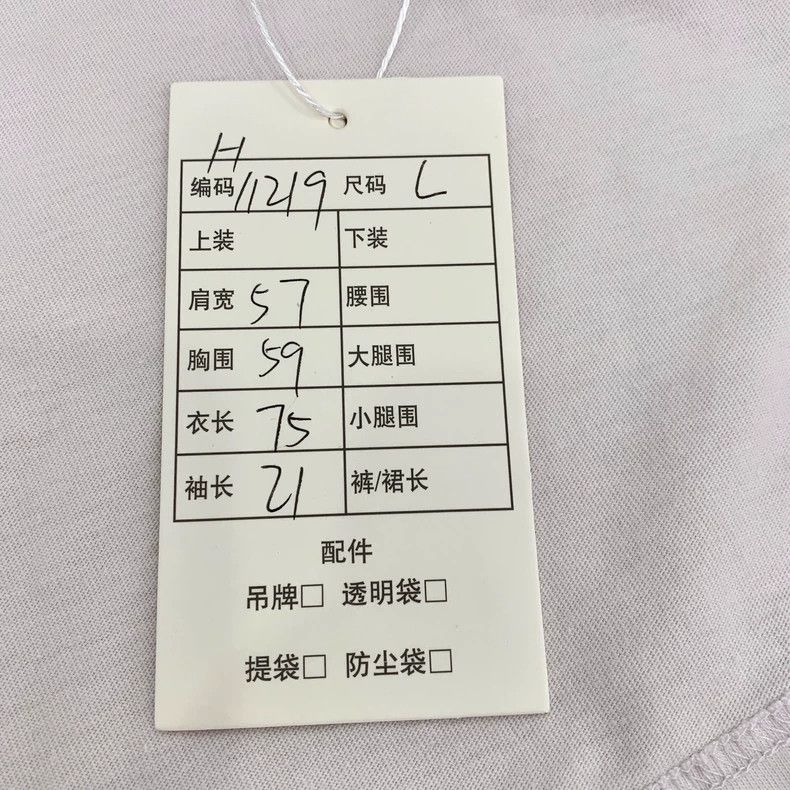 H
编码 11219 尺码 L
上装 下装
肩宽 57 腰围
胸围 59 大腿围
衣长 75 小腿围
袖长 21 裤/裙长
配件
吊牌□ 透明袋□
提袋□ 防尘袋□